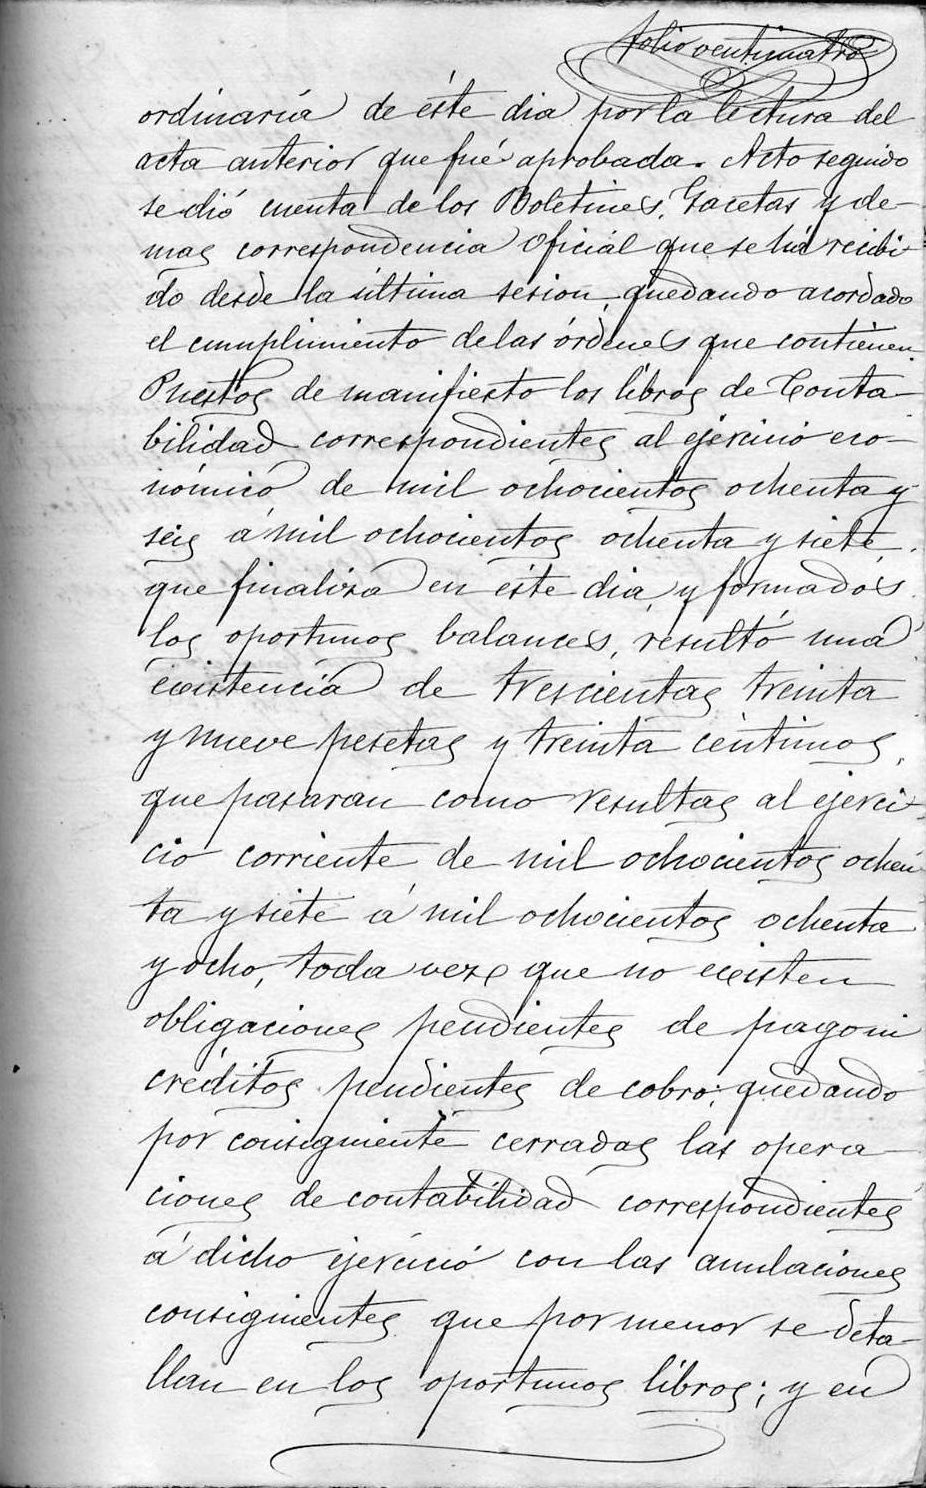 folio veinticuatro
ordinaria de éste dia por la lectura del
acta anterior que fué aprobada. Acto seguido
se dió cuenta de los Boletines, Gacetas y de-
mas correspondencia oficial que se há recibi-
do desde la última sesion, quedando acordado
el cumplimiento de las órdenes que contienen.
Puestos de manifiesto los libros de Conta-
bilidad correspondientes al ejercicio eco-
nómico de mil ochocientos ochenta y
seis á mil ochocientos ochenta y siete,
que finaliza en éste dia, y formados
los oportunos balances, resultó una
existencia de trescientas treinta
y nueve pesetas y treinta céntimos,
que pasaran como resultas al ejerci-
cio corriente de mil ochocientos ochen
ta y siete á mil ochocientos ochenta
y ocho, toda vez que no existen
obligaciones pendientes de pago ni
créditos pendientes de cobro; quedando
por consiguiente cerradas las opera-
ciones de contabilidad correspondientes
á dicho ejercicio con las anulaciones
consiguientes que por menor se deta-
llan en los oportunos libros; y en